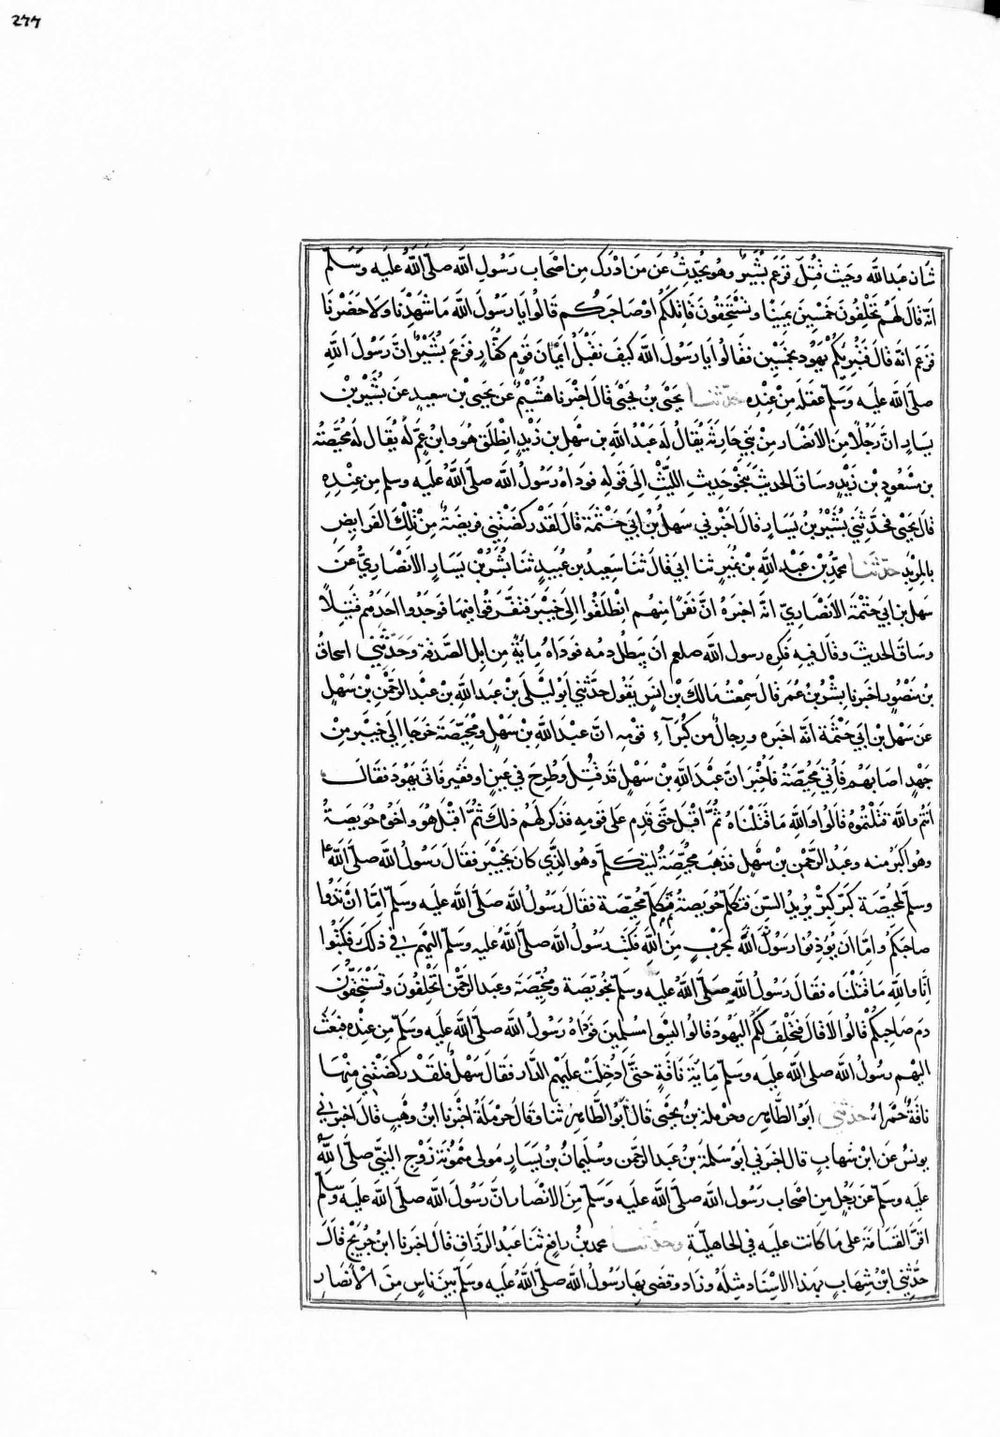 ٢٧٧
شان عبدالله وحيث قُتِلَ فزعم بُشَيْرٌ وهو يُحَدِّثُ عَن مَن اَدْرَك مِن اَصْحاب رَسُولِ اللّه صلّى اللّهُ عليه وسَلّم
انّه قالَ لَهُم تَحْلِفُونَ خَمْسِينَ يَمِينًا وتَسْتَحِقّونَ قَاتِلَكُم اوْ صَاحِبَكُم قَالُوا يَا رَسُولَ اللَّه مَا شَهِدْنَا ولا حَضَرْنَا
فزعَم انّه قالَ فَتُبْرِيكُمْ يَهُود بخمسِين فقالُوا يَا رَسُولَ اللّه كيفَ نَقْبَلُ اَيْمَانَ قَومٍ كفّارٍ فزعَمَ بُشَيْرٌ انّ رَسُولَ اللهِ
صلى اللّه عليه وسَلّم عقلَه مِن عِنْدِه حدّثنا يَحْيَى بن يَحْيَى قالَ اخْبرنا هُشَيْمٌ عَن يَحيَى بْن سعيدٍ عَن بُشَيْر بْن
يسَارٍ انّ رَجُلًا مِنَ الاَنْصَارِ مِنْ بَنِي حَارِثَةَ يُقَالُ لَه عَبْدُ اللهِ بن سَهْلِ بن زَيْدٍ انْطَلَقَ هُوَ وابْن عَمٍّ لَهُ يُقَال لَه مُحَيّصَةُ
بن مَسْعُودِ بْن زَيْدٍ وسَاقَ الحديثَ بِنَحْوِ حَدِيثِ اللّيْثِ الى قولِه فودَاه رَسُولُ الله صلّى اللَّه عليَه وسلم مِن عِنْدِهِ
قالَ يحيَى فحَدّثَنِي بُشَيْرُ بنُ يَسَارٍ قالَ اخْبرني سَهْلُ بْنُ ابِي حَثْمَةَ قالَ لقَدْ ركَضَتْنِي فريضَةٌ مِنْ تِلْكَ الفَرايِضِ
بالمِرْبَدِ حدّثنا محمّد بْن عَبْدِ اللَّهِ بن نُمَيْرٍ ثنا ابي قالَ ثنا سَعِيدُ بن عُبَيدٍ ثنا بُشَيْرُ بْن يَسَارٍ الاَنْصَارِيُّ عَن
سَهل بن ابي حَثْمَة الاَنْصَارِيّ انّه اخبَرَهُ انّ نَفَرًا مِنهُم انْطَلَقُوا الى خَيْبَر فتفَرّقوا فيهَا فوَجَدُوا احَدَهُم قَتِيلًا
وسَاقَ الحديثَ وقالَ فيهِ فكره رسول اللّه صلعم ان يَبْطُل دمه فوَدَاهُ مِايَةً مِن اِبِل الصّدقه وَحَدّثَنِي اسحاقُ
بن مَنْصُورٍ اخبَرنا بِشْرُ بْنُ عُمَرَ قالَ سَمِعْتُ مَالكَ بْن انسٍ يَقول حَدّثَنِي ابُو لَيْلَى بْن عَبدِ اللّهِ بْن عَبْدِ الرّحْمٰنِ بْن سَهْلٍ
عَن سَهْلِ بْن ابي حَثْمَة انّه اخبَره ورِجالٌ من كُبَرآءِ قوْمِه انّ عبْدَ اللّهِ بْن سَهْلٍ ومُحَيّصَة خَرجَا الى خَيْبَر مِنْ
جَهْدٍ اصَابَهُم فاُتي مُحَيّصَةُ فاُخْبِرَ انّ عَبْدَ اللَّهِ بْن سَهْلٍ قد قُتِلَ وطُرِحَ في عَينٍ او فَقير فاتَى يَهُودَ فقَالَ
انتُم واللّه قتَلْتُمُوهُ قالُوا واللّهِ مَا قتَلْنَاهُ ثُمَّ اقْبَلَ حتّى قَدِم على قومِه فذكَرَ لَهُم ذلكَ ثُمّ اقْبَلَ هُو واخُوه حُوَيصَةُ
وهُو اكبَرُ منه وعَبدُ الرّحمٰن بن سَهْلٍ فذهَبَ مُحَيّصَةُ ليَتكلّم وهُو الذي كانَ بخَيْبَر فقالَ رَسُولُ اللّه صلّى الله عليه
وسلّم لمُحيّصَة كَبّر كبّر يُريدُ السّنّ فتكلّمَ حُوَيصةُ ثم تكلّم مُحيّصة فقالَ رَسُولُ اللّه صلّى اللّه عليه وسَلّم امّا ان يَدُوا
صاحبَكُم وامّا ان يُؤذِنوا بحَرْبٍ فكتَبَ رَسُولُ اللّه صلّى اللّهُ عليه وسَلّم اليهِم في ذلكَ فكتبُوا
انّا واللّهِ مَا قتلنَاه فقَالَ رَسُولُ اللَّهِ صَلّى اللّهُ عليَه وسَلّم لحُوَيّصَة ومُحَيّصَة وعَبدِ الرّحْمٰن اَتَحْلِفُونَ وتَسْتَحِقّونَ
دمَ صَاحِبِكُمْ قالُوا لا قالَ فتَحْلِفُ لَكُمُ اليَهُودُ قالُوا ليسُوا بمُسْلِمينَ فوَدَاهُ رَسُولُ اللّه صلّى اللّهُ عليه وسَلّم مِن عِنْدِه فبعَثَ
اليْهِم رسُولُ اللّه صلى الله عليه وسلّم مِايَةَ نَاقَةٍ حتّى اُدْخِلَتْ عليهِم الدّار فقَالَ سَهْلٌ فلقَدْ ركَضَتْنِي مِنْهَا
ناقةٌ حَمْرَاءُ حدّثنِي ابُو الطّاهِر وحَرْملةُ بن يحيَى قالَ ابُو الطّاهِر ثنا وقالَ حَرْمَلةُ اخْبَرنا ابنُ وَهْبٍ قالَ اخبَرني
يونسُ عَن ابْن شهَابٍ قالَ اخبَرني ابُو سَلمَة بن عَبد الرّحمٰن وسُليْمانُ بْن يَسَارٍ مَولى مَيْمُونَةَ زَوْجِ النّبيّ صلّى اللّهُ
عليه وسلّم عَن رَجُلٍ مِن اصْحَاب رَسُولِ اللّه صلّى اللّهُ عليه وسَلّم مِنَ الانْصَار انّ رَسُولَ اللّه صلّى اللّه عليه وسلّم
اقَرّ القسَامَة على مَا كانَت عليه في الجاهليّة وحدّثنا محمدُ بنُ رافِعٍ ثنا عَبْدُ الرّزّاق قالَ اخبَرنا ابنُ جُرَيْجٍ قالَ
حَدّثنِي ابْنُ شِهَابٍ بهَذا الاسْنَاد مِثلَه وزَاد وقضَى بِهَا رسُولُ اللّه صلّى اللّهُ عليه وسَلّم بَينَ نَاسٍ مِنَ الاَنْصَارِ